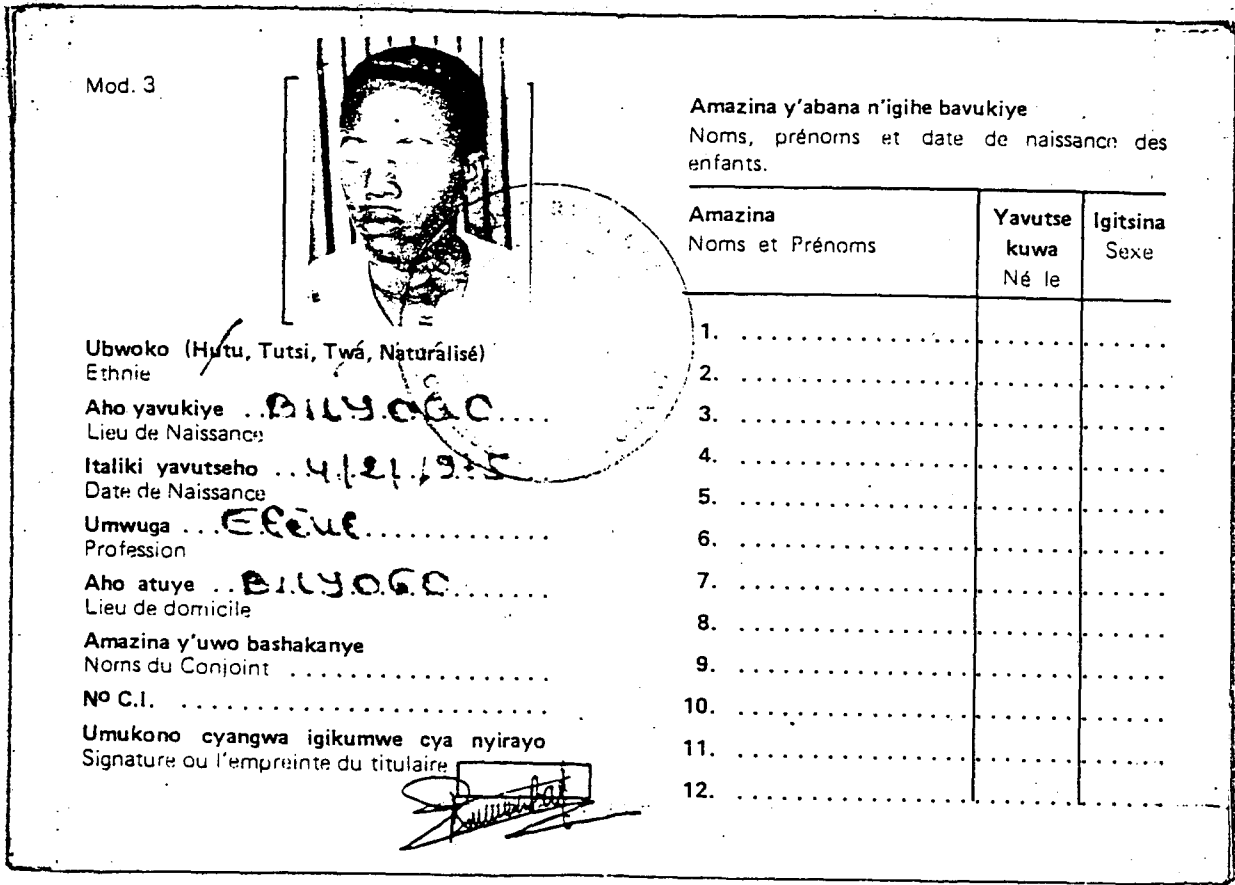 Mod. 3
Ubwoko (Hutu, Tutsi, Twa, Naturalisé)
Ethnie
Aho yavukiye ..BILYOGO....
Lieu de Naissance
Italiki yavutseho ...4/2/.
Date de Naissance
Umwuga ...Elève..............
Profession
Aho atuye ..BILYOGO.......
Lieu de domicile
Amazina y'uwo bashakanye
Noms du Conjoint ...................
Nº C.I. ..........................
Umukono cyangwa igikumwe cya nyirayo
Signature ou l'empreinte du titulaire
Amazina y'abana n'igihe bavukiye
Noms, prénoms et date de naissance des
enfants.
Amazina
Noms et Prénoms
Yavutse
kuwa
Né le
Igitsina
Sexe
1. ..............................
2. ..............................
3. ..............................
4. ..............................
5. ..............................
6. ..............................
7. ..............................
8. ..............................
9. ..............................
10. ..............................
11. ..............................
12. ..............................